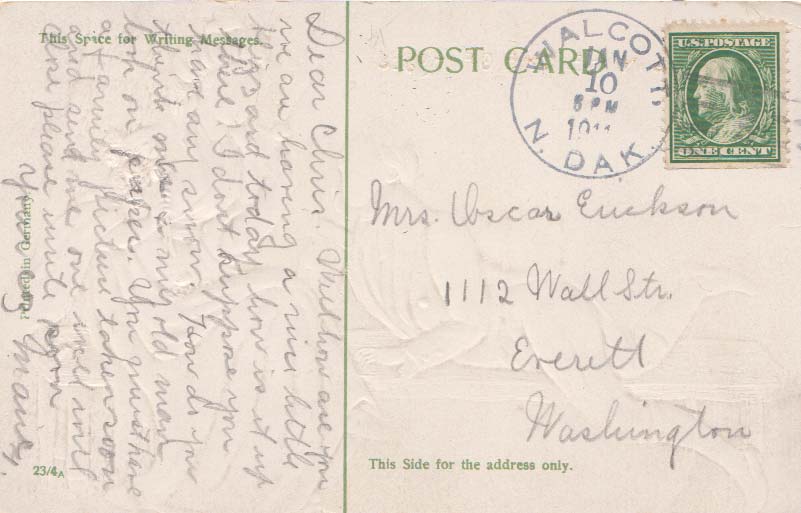 This Space for Writing Messages.
POST CARD
WALCOTT,
JAN
10
8 PM
191
N. DAK.
U.S. POSTAGE
ONE CENT
Mrs. Oscar Erickson
1112 Wall Str.
Everett
Washington
This Side for the address only.
Printed in Germany
23/4A
Dear Chris. Well how are you
we are having a nice little
blizzard today how is it up
there? I dont suppose you
have any snow. How do you
think me & my old man
look on paper. You must have
a family picture taken soon
and send me one well will
close please write soon
yours Mamie.